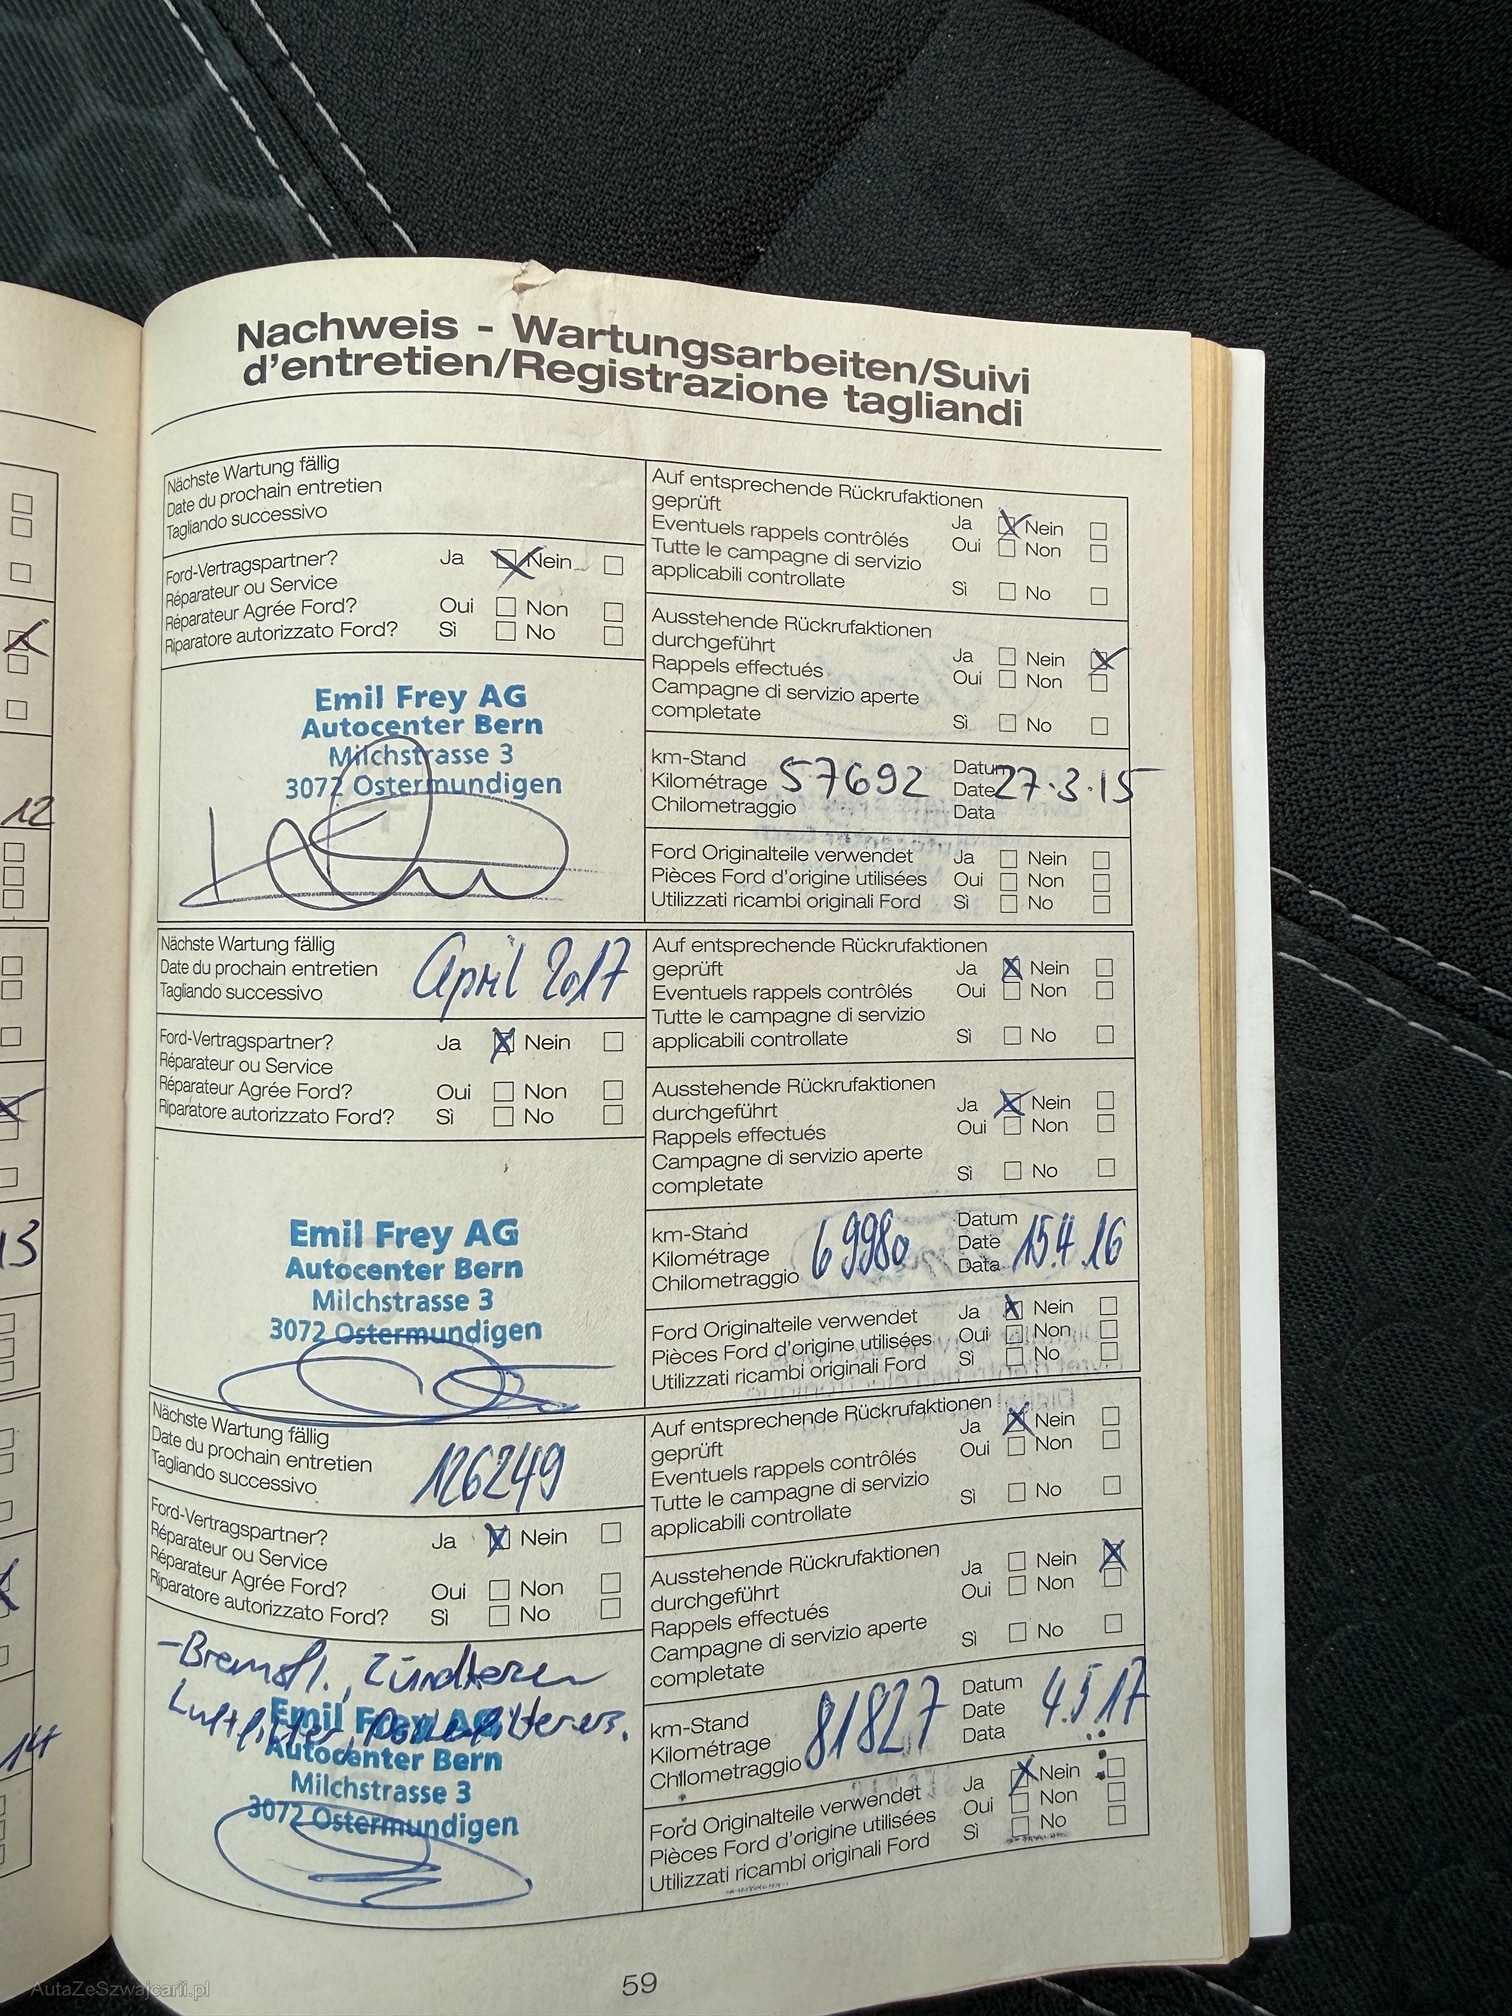 Nachweis - Wartungsarbeiten/Suivi
d'entretien/Registrazione tagliandi
Nächste Wartung fällig
Date du prochain entretien
Tagliando successivo
Ford-Vertragspartner? Ja Nein
Réparateur ou Service
Réparateur Agrée Ford? Oui Non
Riparatore autorizzato Ford? Sì No
Emil Frey AG
Autocenter Bern
Milchstrasse 3
3072 Ostermundigen
Auf entsprechende Rückrufaktionen
geprüft Ja Nein
Eventuels rappels contrôlés Oui Non
Tutte le campagne di servizio
applicabili controllate Sì No
Ausstehende Rückrufaktionen
durchgeführt Ja Nein
Rappels effectués Oui Non
Campagne di servizio aperte
completate Sì No
km-Stand Datum
Kilométrage 57692 Date 27.3.15
Chilometraggio Data
Ford Originalteile verwendet Ja Nein
Pièces Ford d'origine utilisées Oui Non
Utilizzati ricambi originali Ford Sì No
Nächste Wartung fällig
Date du prochain entretien April 2017
Tagliando successivo
Ford-Vertragspartner? Ja Nein
Réparateur ou Service
Réparateur Agrée Ford? Oui Non
Riparatore autorizzato Ford? Sì No
Emil Frey AG
Autocenter Bern
Milchstrasse 3
3072 Ostermundigen
Auf entsprechende Rückrufaktionen
geprüft Ja Nein
Eventuels rappels contrôlés Oui Non
Tutte le campagne di servizio
applicabili controllate Sì No
Ausstehende Rückrufaktionen
durchgeführt Ja Nein
Rappels effectués Oui Non
Campagne di servizio aperte
completate Sì No
km-Stand Datum
Kilométrage 69980 Date 15.4.16
Chilometraggio Data
Ford Originalteile verwendet Ja Nein
Pièces Ford d'origine utilisées Oui Non
Utilizzati ricambi originali Ford Sì No
Nächste Wartung fällig
Date du prochain entretien 126249
Tagliando successivo
Ford-Vertragspartner? Ja Nein
Réparateur ou Service
Réparateur Agrée Ford? Oui Non
Riparatore autorizzato Ford? Sì No
-Bremsfl., Zündkerzen
Luftfilter, Pollenfilter
Emil Frey AG
Autocenter Bern
Milchstrasse 3
3072 Ostermundigen
Auf entsprechende Rückrufaktionen
geprüft Ja Nein
Eventuels rappels contrôlés Oui Non
Tutte le campagne di servizio
applicabili controllate Sì No
Ausstehende Rückrufaktionen
durchgeführt Ja Nein
Rappels effectués Oui Non
Campagne di servizio aperte
completate Sì No
km-Stand Datum
Kilométrage 81827 Date 4.5.17
Chilometraggio Data
Ford Originalteile verwendet Ja Nein
Pièces Ford d'origine utilisées Oui Non
Utilizzati ricambi originali Ford Sì No
59
12
13
14
AutaZeSzwajcarii.pl